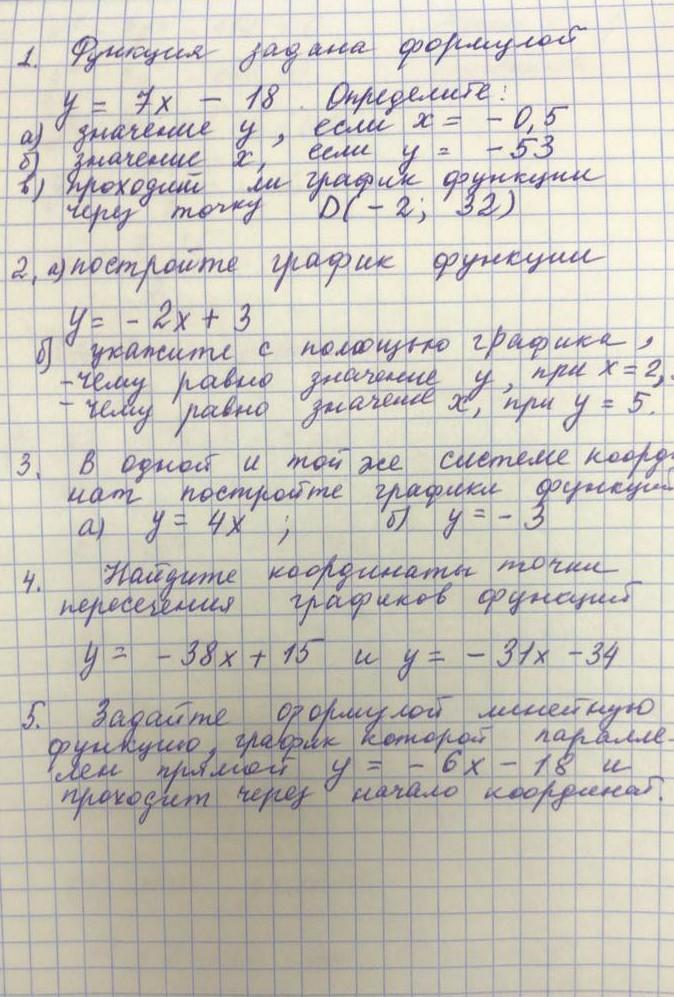 1. Функция задана формулой
y = 7x - 18. Определите:
а) значение y, если x = -0,5
б) значение x, если y = -53
в) проходит ли график функции
через точку D(-2; 32)
2. а) постройте график функции
y = -2x + 3
б) укажите с помощью графика,
- чему равно значение y, при x = 2,
- чему равно значение x, при y = 5.
3. В одной и той же системе коорди
нат постройте графики функций
а) y = 4x ; б) y = -3
4. Найдите координаты точки
пересечения графиков функций
y = -38x + 15 и y = -31x - 34
5. Задайте формулой линейную
функцию, график которой паралле-
лен прямой y = -6x - 18 и
проходит через начало координат.